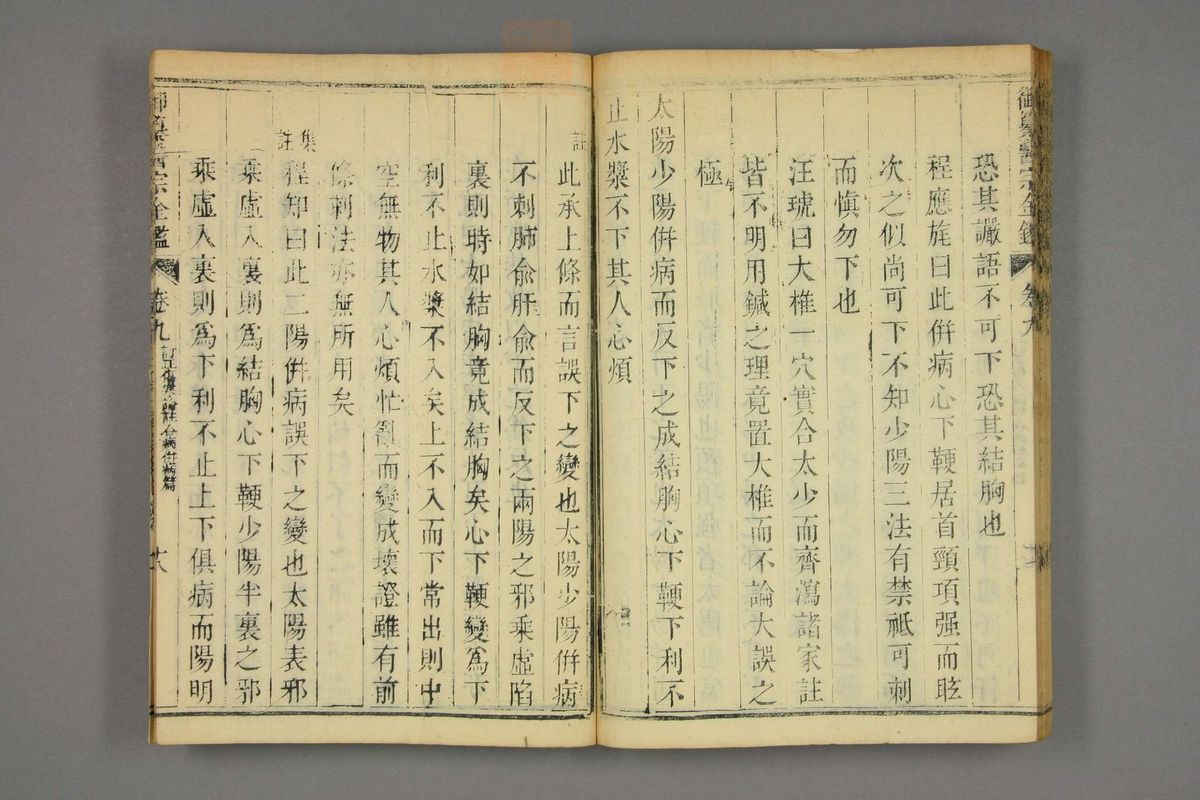 御纂醫宗金鑑 卷九
恐其讝語不可下恐其結胸也
程應旄曰此併病心下鞕居首頸項强而眩
次之似尚可下不知少陽三法有禁祗可刺
而愼勿下也
汪琥曰大椎一穴實合太少而齊瀉諸家註
皆不明用鍼之理竟置大椎而不論大誤之
極
太陽少陽併病而反下之成結胸心下鞕下利不
止水漿不下其人心煩
註
此承上條而言誤下之變也太陽少陽併病
不刺肺兪肝兪而反下之兩陽之邪乘虛陷
裏則時如結胸竟成結胸矣心下鞕變爲下
利不止水漿不入矣上不入而下常出則中
空無物其人心煩忙亂而變成壞證雖有前
條刺法亦無所用矣
集註
程知曰此二陽併病誤下之變也太陽表邪
乘虛入裏則爲結胸心下鞕少陽半裏之邪
乘虛入裏則爲下利不止上下俱病而陽明
御纂醫宗金鑑 卷九 合病併病篇